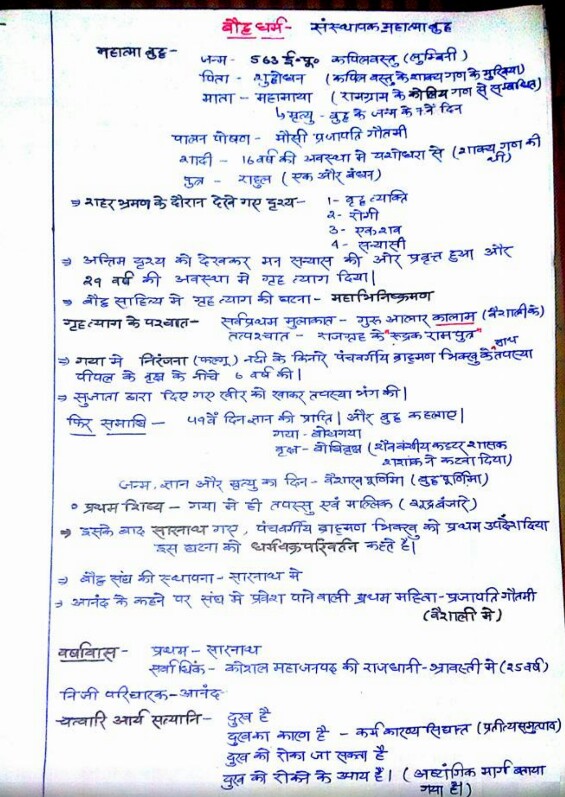 बौद्ध धर्म - संस्थापक महात्मा बुद्ध
महात्मा बुद्ध -
जन्म - 563 ई॰पू॰ कपिलवस्तु (लुम्बिनी)
पिता - शुद्धोधन (कपिल वस्तु के शाक्य गण के मुखिया)
माता - महामाया (रामग्राम के कोलिय गण से सम्बंधित)
↳ मृत्यु - बुद्ध के जन्म के 7वें दिन
पालन पोषण - मौसी प्रजापति गौतमी
शादी - 16 वर्ष की अवस्था मे यशोधरा से (शाक्य गण की थी)
पुत्र - राहुल (एक और बंधन)
⇒ शहर भ्रमण के दौरान देखे गए दृश्य - 1- वृद्ध व्यक्ति
2- रोगी
3- एक शव
4 - सन्यासी
⇒ अन्तिम दृश्य को देखकर मन सन्यास की ओर प्रवृत्त हुआ और
29 वर्ष की अवस्था मे गृह त्याग दिया।
⇒ बौद्ध साहित्य मे गृह त्याग की घटना - महाभिनिष्क्रमण
गृह त्याग के पश्चात - सर्वप्रथम मुलाकात - गुरु आलार कालाम (वैशाली के)
तत्पश्चात - राजगृह के "रुद्रक रामपुत्र"
⇒ गया मे निरंजना (फल्गु) नदी के किनारे पंचवर्गीय ब्राह्मण भिक्खु के साथ तपस्या
पीपल के वृक्ष के नीचे 6 वर्ष की।
⇒ सुजाता द्वारा दिए गए खीर को खाकर तपस्या भंग की।
फिर समाधि - 49वें दिन ज्ञान की प्राप्ति। और बुद्ध कहलाए।
गया - बोधगया
वृक्ष - बोधिवृक्ष (शैववंशीय कट्टर शासक
शशांक ने कटवा दिया)
जन्म, ज्ञान और मृत्यु का दिन - वैशाख पूर्णिमा (बुद्ध पूर्णिमा)
० प्रथम शिष्य - गया मे ही तपस्सु एवं मल्लिक (शूद्र बंजारे)
⇒ इसके बाद सारनाथ गए, पंचवर्गीय ब्राह्मण भिक्खु को प्रथम उपदेश दिया
इस घटना को धर्मचक्रपरिवर्तन कहते है।
⇒ बौद्ध संघ की स्थापना - सारनाथ मे
⇒ आनंद के कहने पर संघ मे प्रवेश पाने वाली प्रथम महिला - प्रजापति गौतमी
(वैशाली मे)
वर्षावास - प्रथम - सारनाथ
सर्वाधिक - कोशल महाजनपद की राजधानी - श्रावस्ती मे (25 वर्ष)
निजी परिचारक - आनंद
चत्वारि आर्य सत्यानि - दुख है
दुख का कारण है - कर्म कारण्य सिद्धान्त (प्रतीत्यसमुत्पाद)
दुख को रोका जा सकता है
दुख को रोकने के उपाय है। (अष्यांगिक मार्ग बताया
गया है।)